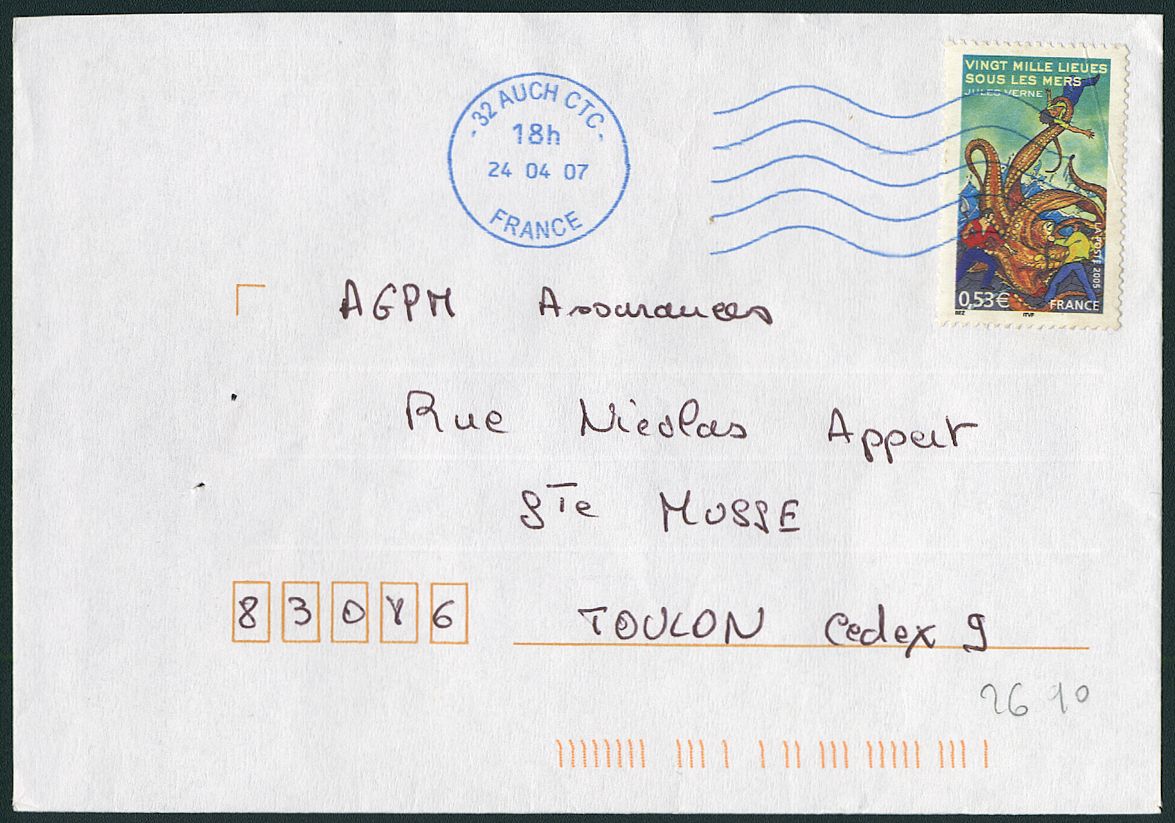 - 32 AUCH CTC -
18h
24 04 07
FRANCE
VINGT MILLE LIEUES
SOUS LES MERS
JULES VERNE
LA POSTE 2005
0,53€ FRANCE
BEZ ITVF
AGPM Assurances
Rue Nicolas Appert
Ste MUSSE
83086 TOULON Cedex 9
2610